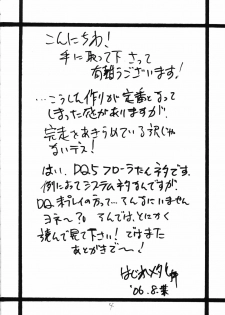 こんにちわ!
手に取って下さって
有難うございます!
…こうしん作りが定番となって
しまった感がありますが、
完走をあきらめている訳じゃ
ないデス!
はい、DQ5フローラたんネタです。
例によってシステムネタなんですが、
DQ未プレイの方って…そんなにいません
ヨネ〜?。そんでは、とにかく
読んで見て下さい!ではまた
あとがきで〜!
はじめ
'06.8.
4